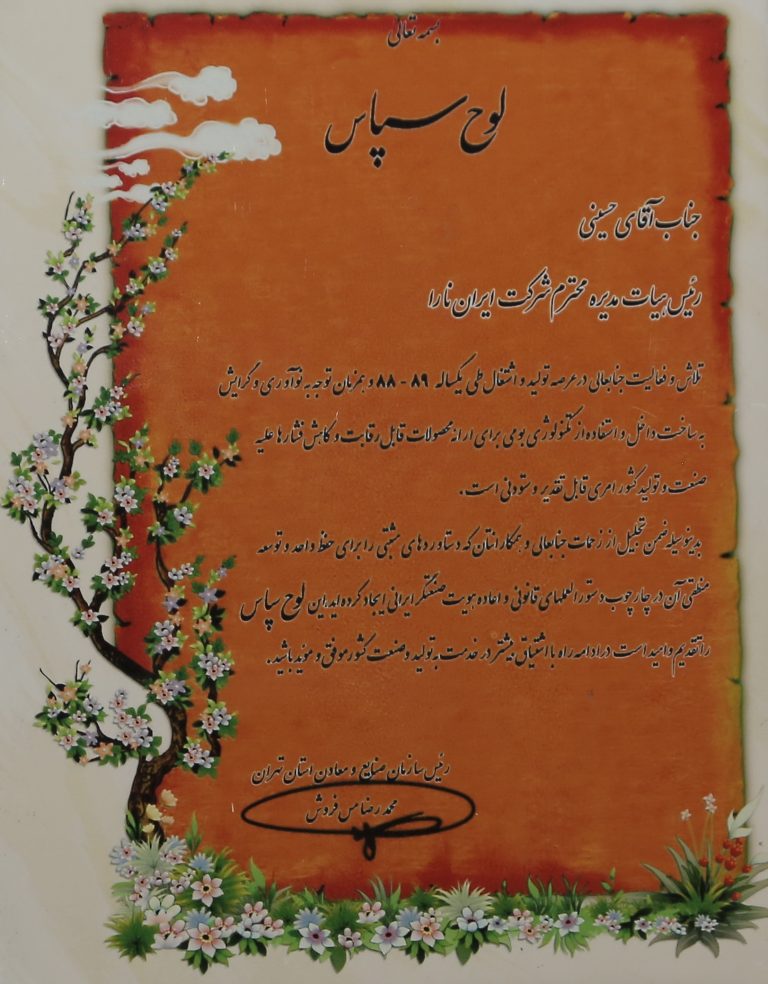 بسمه تعالی
لوح سپاس
جناب آقای حسینی
رئیس هیات مدیره محترم شرکت ایران نارا
تلاش و فعالیت جنابعالی در عرصه تولید و اشتغال طی یکساله ۸۹ - ۸۸ و همزمان توجه به نوآوری و گرایش
به ساخت داخل و استفاده از تکنولوژی بومی برای ارائه محصولات قابل رقابت و کاهش فشارها علیه
صنعت و تولید کشور امری قابل تقدیر و ستودنی است.
بدینوسیله ضمن تجلیل از زحمات جنابعالی و همکارانتان که دستاوردهای مثبتی را برای حفظ واحد و توسعه
منطقی آن در چارچوب دستورالعملهای قانونی و اعاده هویت صنعتگر ایرانی ایجاد کرده اید، این لوح سپاس
را تقدیم و امید است در ادامه راه با اشتیاق بیشتر در خدمت به تولید و صنعت کشور موفق و موید باشید.
رئیس سازمان صنایع و معادن استان تهران
محمد رضا مس فروش